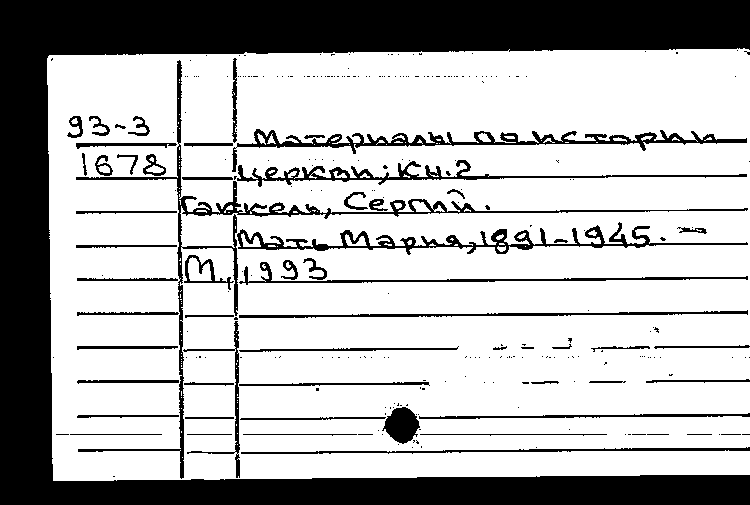 93-3
1678
Материалы по истории
церкви; Кн. 2.
Гаккель, Сергий.
Мать Мария, 1891-1945. –
М., 1993